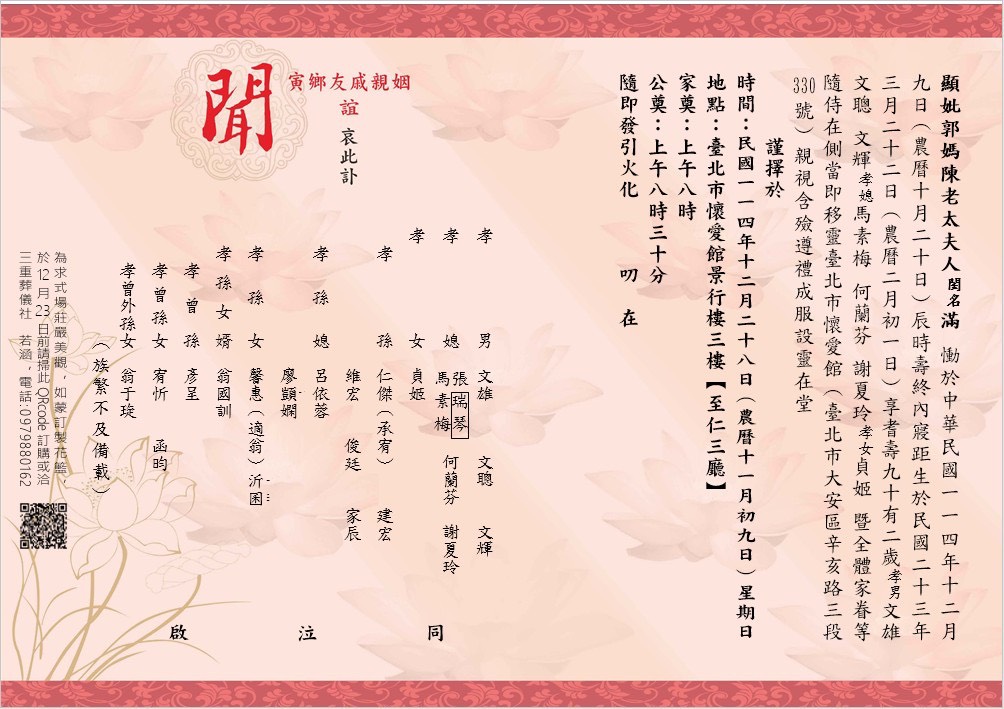 顯妣郭媽陳老太夫人閔名滿　慟於中華民國一一四年十二月
九日（農曆十月二十日）辰時壽終內寢距生於民國二十三年
三月二十二日（農曆二月初一日）享耆壽九十有二歲孝男文雄
文聰　文輝孝媳馬素梅　何蘭芬　謝夏玲孝女貞姬　暨全體家眷等
隨侍在側當即移靈臺北市懷愛館（臺北市大安區辛亥路三段
330號）親視含殮遵禮成服設靈在堂
謹擇於
時間：民國一一四年十二月二十八日（農曆十一月初九日）星期日
地點：臺北市懷愛館景行樓三樓【至仁三廳】
家奠：上午八時
公奠：上午八時三十分
隨即發引火化　叨　在
姻親戚友鄉寅
誼
哀此訃
聞
孝　男　文雄　文聰　文輝
孝　媳　張瑞琴
馬素梅　何蘭芬　謝夏玲
孝　女　貞姬
孝　孫　仁傑（承宥）　建宏
維宏　俊廷　家辰
孝　孫　媳　呂依蓉
廖顗嫻
孝　孫　女　馨惠（適翁）　沂囷
孝　孫　女　婿　翁國訓
孝　曾　孫　彥呈
孝　曾　孫　女　宥忻　函昀
孝曾外孫女　翁于琁
（族繁不及備載）
同　泣　啟
為求式場莊嚴美觀，如蒙訂製花籃，
於12月23日前請掃此QRcode訂購或洽
三重葬儀社　若涵，電話:0979880162